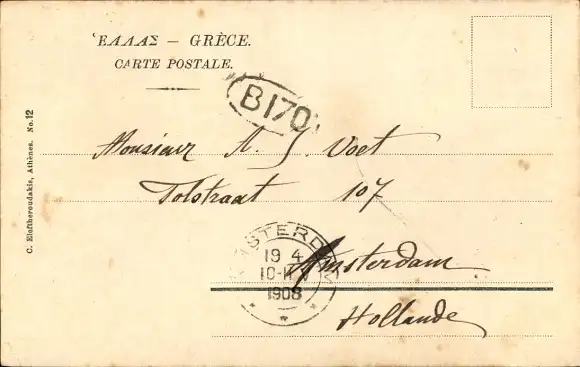 ἙΛΛΑΣ — GRÈCE.
CARTE POSTALE.
B170
C. Eleftheroudakis, Athènes. No. 12
Monsieur A. J. Voet
Tolstraat 107
AMSTERDAM
19 4
10-11 V
1908
Amsterdam
Hollande